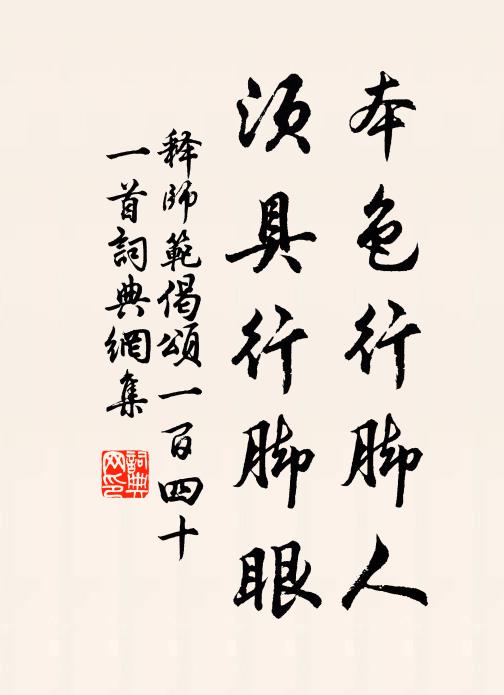 本色行脚人
须具行脚眼
释师範偈颂一百四十
一首詞典網集
詞典
网印